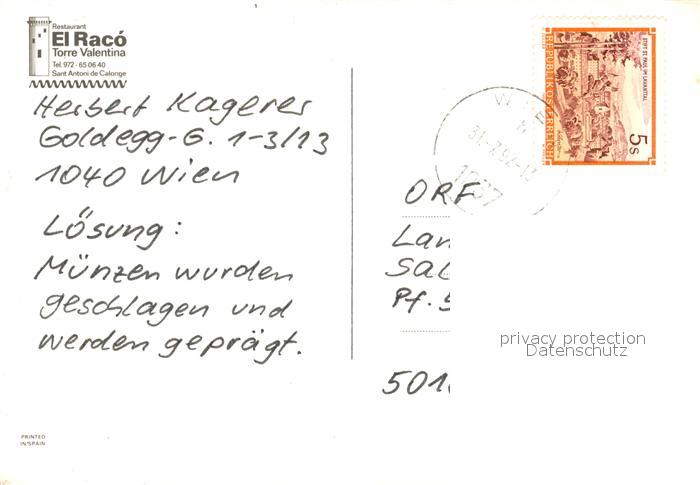 Restaurant
El Racó
Torre Valentina
Tel. 972 - 65 06 40
Sant Antoni de Calonge
Herbert Kagerer
Goldegg-G. 1-3/13
1040 Wien
Lösung:
Münzen wurden
geschlagen und
werden geprägt.
PRINTED
IN SPAIN
STIFT ST. PAUL IM LAVANTTAL
REPUBLIK ÖSTERREICH
5s
ORF
Lan
Sal
Pf. 5
501
privacy protection
Datenschutz